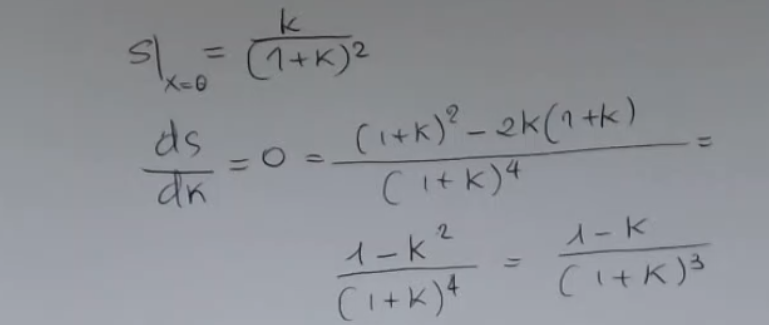 S|ₓ₌₀ = k/(1+k)²
ds/dk = 0 = ((1+k)² - 2k(1+k))/(1+k)⁴ =
(1-k²)/(1+k)⁴ = (1-k)/(1+k)³